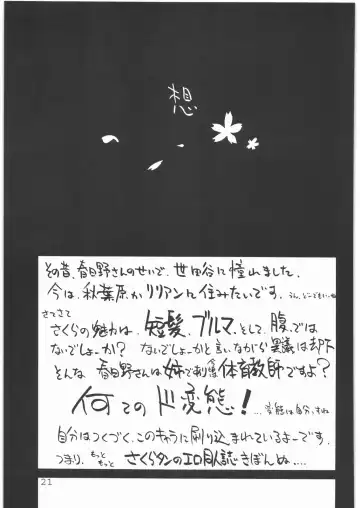 想
その昔、春日野さんのせいで、世田谷に憧れました。
今は、秋葉原かリリアンに住みたいです。
さてさて
さくらの魅力は、短髪、ブルマ、そして腹では
ないでしょーか? ないでしょーかと言いながら異議は却下
そんな春日野さんは 体育教師ですよ?
何てのド変態!...変態は自分すね
自分はつくづく、このキャラに刷り込まれているよーです。
つまり、もっともっと さくらタンのエロ同人誌きぼんぬ....
21